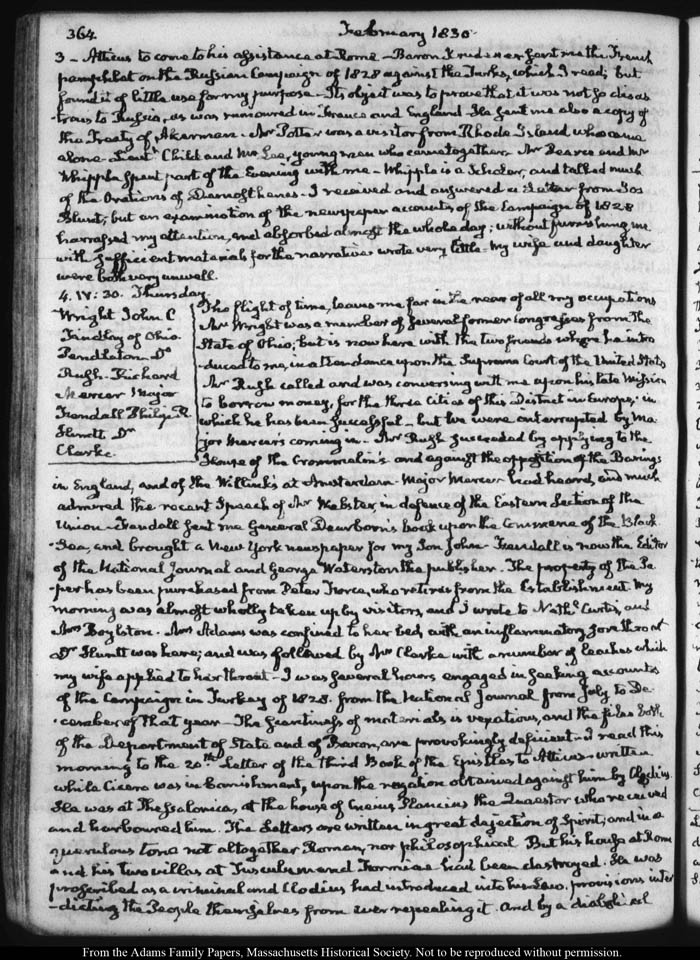 364.
February 1830.
3 — Atticus to come to his assistance at Rome — Baron Krudener sent me the French
pamphlet on the Russian Campaign of 1828 against the Turks, which I read; but
found it of little use for my purpose — Its object was to prove that it was not so disas
-trous to Russia, as was rumoured in France and England. He sent me also a copy of
the Treaty of Akerman — Mr Potter was a visitor from Rhode Island who came
alone — Lieutt Child and Mr Lee, young men who came together. Mr Pearce and Mr
Whipple spent part of the Evening with me — Whipple is a Scholar, and talked much
of the Orations of Demosthenes — I received and answered a Letter from Jos
Blunt; but an examination of the newspaper accounts of the Campaign of 1828
harrassed my attention, and absorbed almost the whole day; without furnishing me
with sufficient materials for the narrative. wrote very little — My wife and daughter
were both very unwell.
4. IV: 30. Thursday.
Wright John C
Findlay of Ohio
Pendleton Do
Rush Richard
Mercer Major
Fendall Philip R.
Huntt Dr
Clarke
The flight of time, leaves me far in the rear of all my occupations
Mr Wright was a member of several former Congresses from the
State of Ohio; but is now here with the two friends whom he intro
-duced to me, in attendance upon the Supreme Court of the United States
Mr Rush called and was conversing with me upon his late Mission
to borrow money, for the three Cities of this District in Europe; in
which he has been successful — but we were interrupted by Ma
jor Mercer's coming in — Mr Rush succeeded by applying to the
House of the Crommelin's and against the opposition of the Barings
in England, and of the Willinks at Amsterdam. Major Mercer had heard, and much
admired the recent Speech of Mr Webster, in defence of the Eastern Section of the
Union — Fendall sent me General Dearborn's book upon the Commerce of the Black
Sea, and brought a New York newspaper for my Son John — Fendall is now the Editor
of the National Journal and George Watterston the publisher. The property of the Pa
per has been purchased from Peter Force, who retires from the Establishment. My
morning was almost wholly taken up by visitors, and I wrote to Nathl Curtis, and
Mrs Boylston. Mrs Adams was confined to her bed, with an inflammatory sore throat
Dr Huntt was here; and was followed by Mrs Clarke with a number of leaches which
my wife applied to her throat — I was several hours engaged in seeking accounts
of the Campaign in Turkey of 1828. from the National Journal from July to De
-cember of that year — The scantiness of materials is vexatious, and the files both
of the Department of State and of Bacon, are provokingly deficient — I read this
morning to the 20th Letter of the third Book of the Epistles to Atticus — written
while Cicero was in banishment, upon the rogation obtained against him by Clodius
He was at Thessalonica, at the house of Cneius Plancius the Quaestor who received
and harboured him. The Letters are written in great dejection of Spirit, and in a
querulous tone not altogether Roman, nor philosophical. But his house at Rome
and his two villas at Tusculum and Formiae had been destroyed. He was
proscribed as a criminal and Clodius had introduced into his Law, provisions inter
-dicting the People themselves from ever repealing it. And by a diabolical
From the Adams Family Papers, Massachusetts Historical Society. Not to be reproduced without permission.